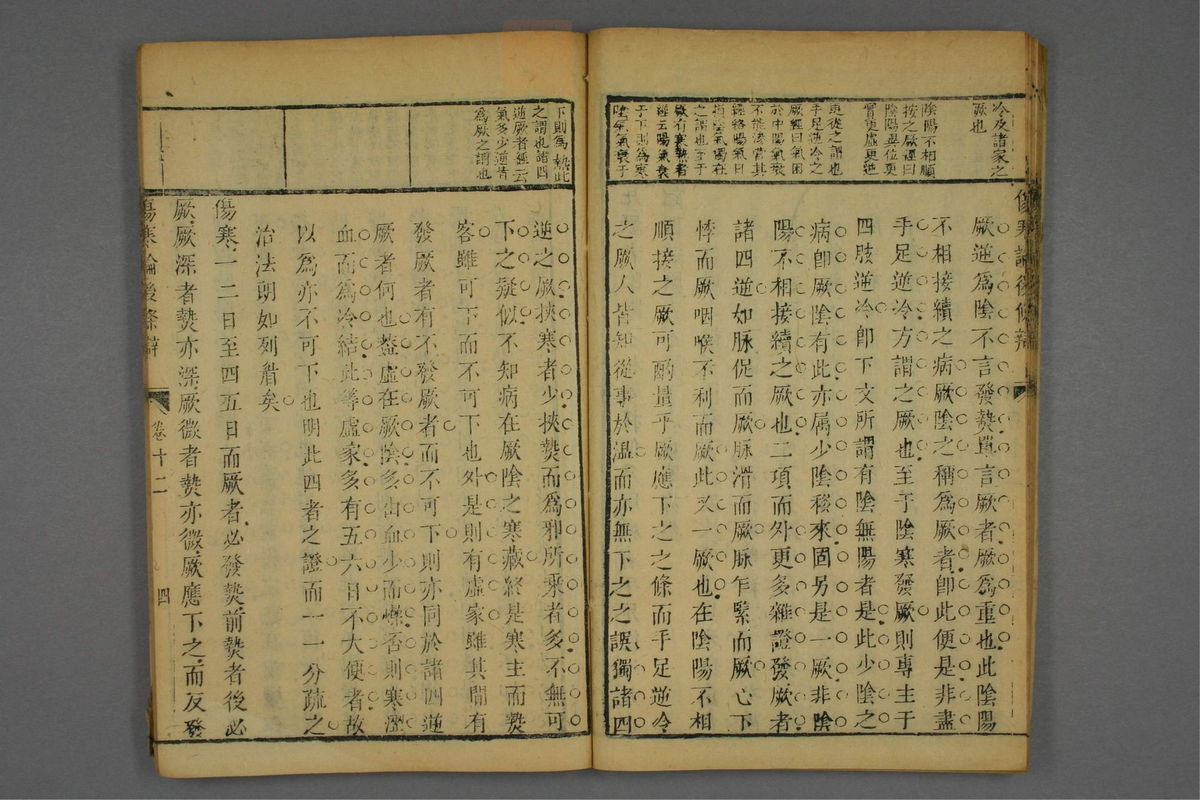 冷及諸家之
厥也
陰陽不相順
接之厥經曰
陰陽異位更
實更虛更逆
更從之謂也
手足逆冷之
厥經曰氣因
於中陽氣衰
不能滲營其
經絡陽氣日
損陰氣獨在
之謂也至于
厥有寒熱者
經云陽氣衰
于下則為寒
陰氣衰于
傷寒論後條辯
厥逆為陰不言發熱單言厥者厥為重也此陰陽
不相接續之病厥陰之稱為厥者卽此便是非盡
手足逆冷方謂之厥也至于陰寒發厥則專主于
四肢逆冷卽下文所謂有陰無陽者是此少陰之
病卽厥陰有此亦属少陰移來固另是一厥非陰
陽不相接續之厥也二項而外更多雜證發厥者
諸四逆如脉促而厥脉滑而厥脉乍緊而厥心下
悸而厥咽喉不利而厥此又一厥也在陰陽不相
順接之厥可酌量乎厥應下之之條而手足逆冷
之厥人皆知從事於溫而亦無下之之誤獨諸四
下則為熱此
之謂也諸四
逆厥者經云
氣多少逆皆
為厥之謂也
逆之厥挾寒者少挾熱而為邪所乘者多不無可
下之疑似不知病在厥陰之寒藏終是寒主而熱
客雖可下而不可下也外是則有虛家雖其間有
發厥者有不發厥者而不可下則亦同於諸四逆
厥者何也蓋虛在厥陰多由血少而燥否則寒澀
血而為冷結此等虛家多有五六日不大便者故
以為亦不可下也明此四者之證而一一分疏之
治法朗如列眉矣
傷寒一二日至四五日而厥者必發熱前熱者後必
厥厥深者熱亦深厥微者熱亦微厥應下之而反發
傷寒論後條辯
卷十二
四